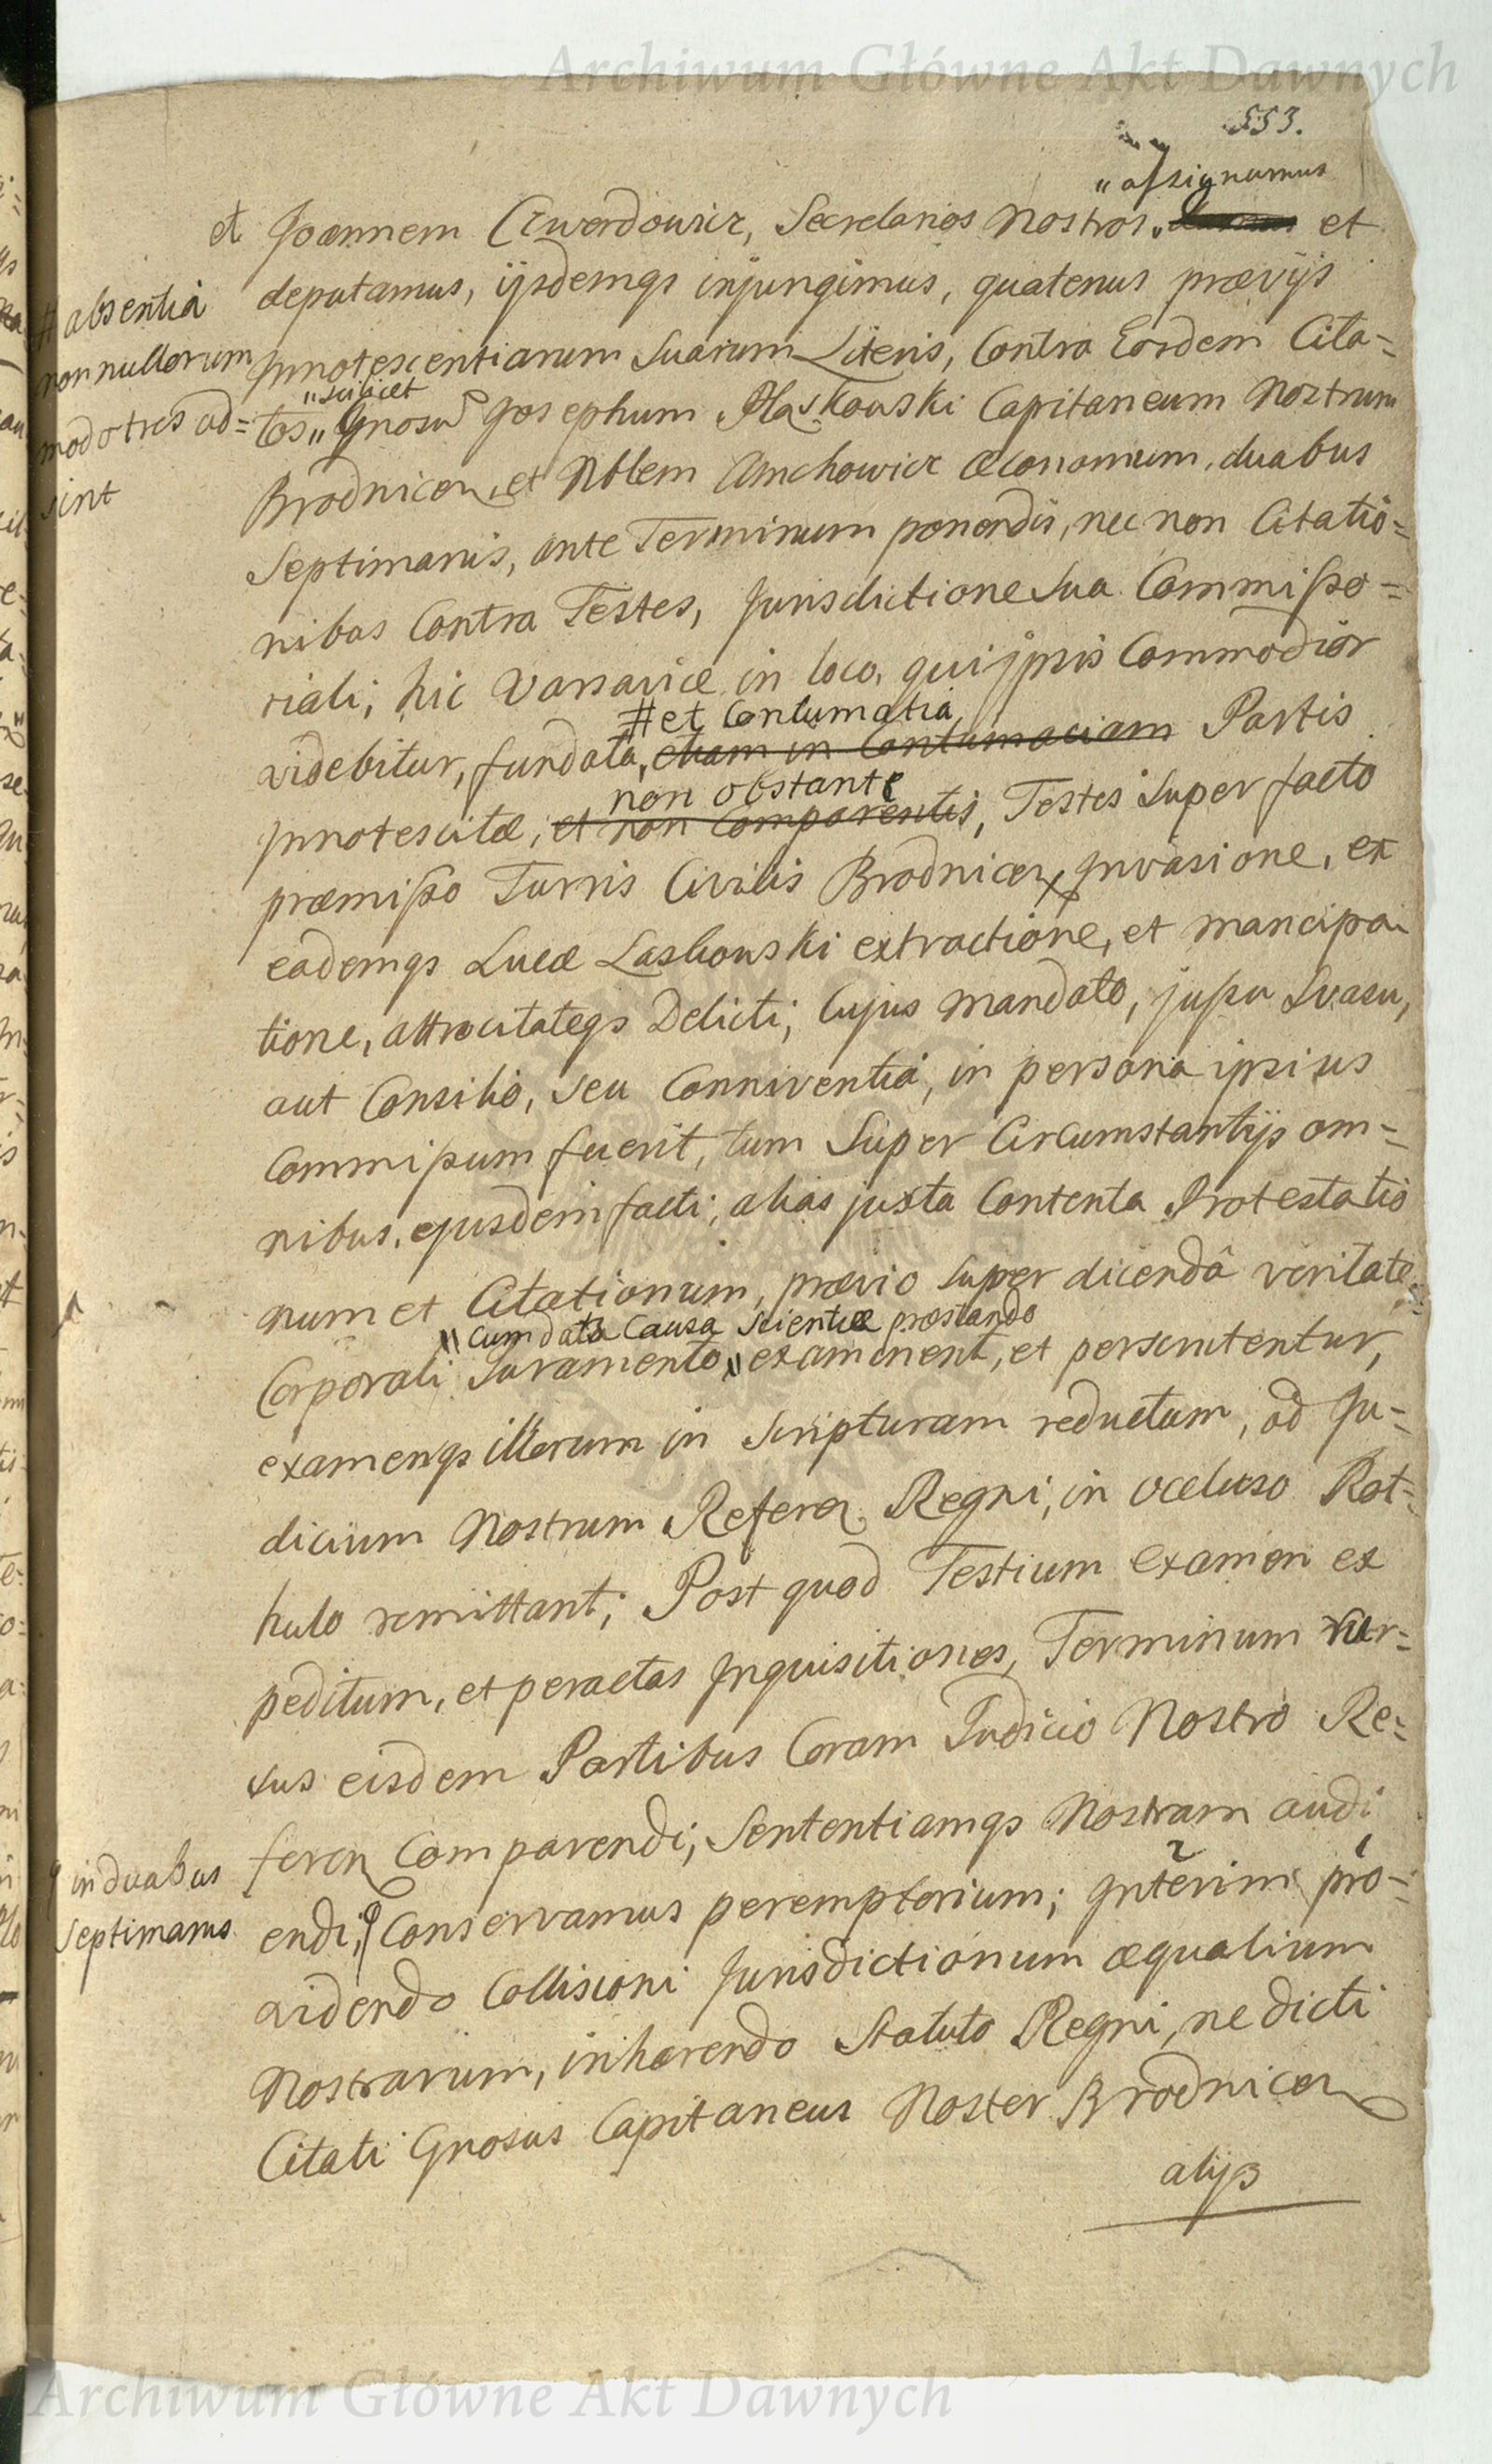 Archiwum Główne Akt Dawnych
553.
"assignamus
et Joannem Cwerdowicz, Secretarios Nostros, et
deputamus, ijsdemqs injungimus, quatenus prævijs
# absentiâ
non nullorum
modo tres ad=
sint
Innotescentiarum Suarum Literis, Contra Eosdem Cita=
"scilicet
tos" Gnosu Josephum Pląskowski Capitaneum Nostrum
Brodnicen, et Nblem Amchowicz Œconomum, duabus
Septimanis, ante Terminum ponendis, nec non Citatio=
nibus Contra Testes, Jurisdictione Sua Commisso=
riali; hic Varsaviæ in loco, qui ipsis Commodior
# et Contumatia
videbitur, fundata, etiam in Contumaciam Partis
non obstante
Innotescitæ, et non Comparentis, Testes Super facto
præmisso Turris Civilis Brodnicen, Invasione, ex
eademqs Lucæ Laskowski extractione, et mancipa-
tione, attrocitateqs Delicti; Cujus mandato, jussu Svasu,
aut Consilio, Seu Conniventiâ, in persona ipsius
Commissum fuerit, tum Super Circumstantijs om=
nibus, ejusdem facti, alias juxta Contenta Protestatio
num et Citationum, prævio Super dicendâ veritate
"cum data Causa Scientiæ præstando
Corporali Juramento" examinent, et perscrutentur,
examenqs illorum in Scripturam reductum, ad Ju=
dicium Nostrum Referen Regni, in occluso Rot=
hulo remittant; Post quod Testium Examen ex
peditum, et peractas Inquisitiones, Terminum rur=
sus eisdem Partibus Coram Judicio Nostro Re=
feren Comparendi, Sententiamqs Nostram audi
in duabus
Septimanis
endi, Conservamus peremptorium; Interim pro=
videndo Collisioni Jurisdictionum æqualium
Nostrarum, inhærendo Statuto Regni, ne dicti
Citati Gnosus Capitaneus Noster Brodnicen
alijs
Archiwum Główne Akt Dawnych